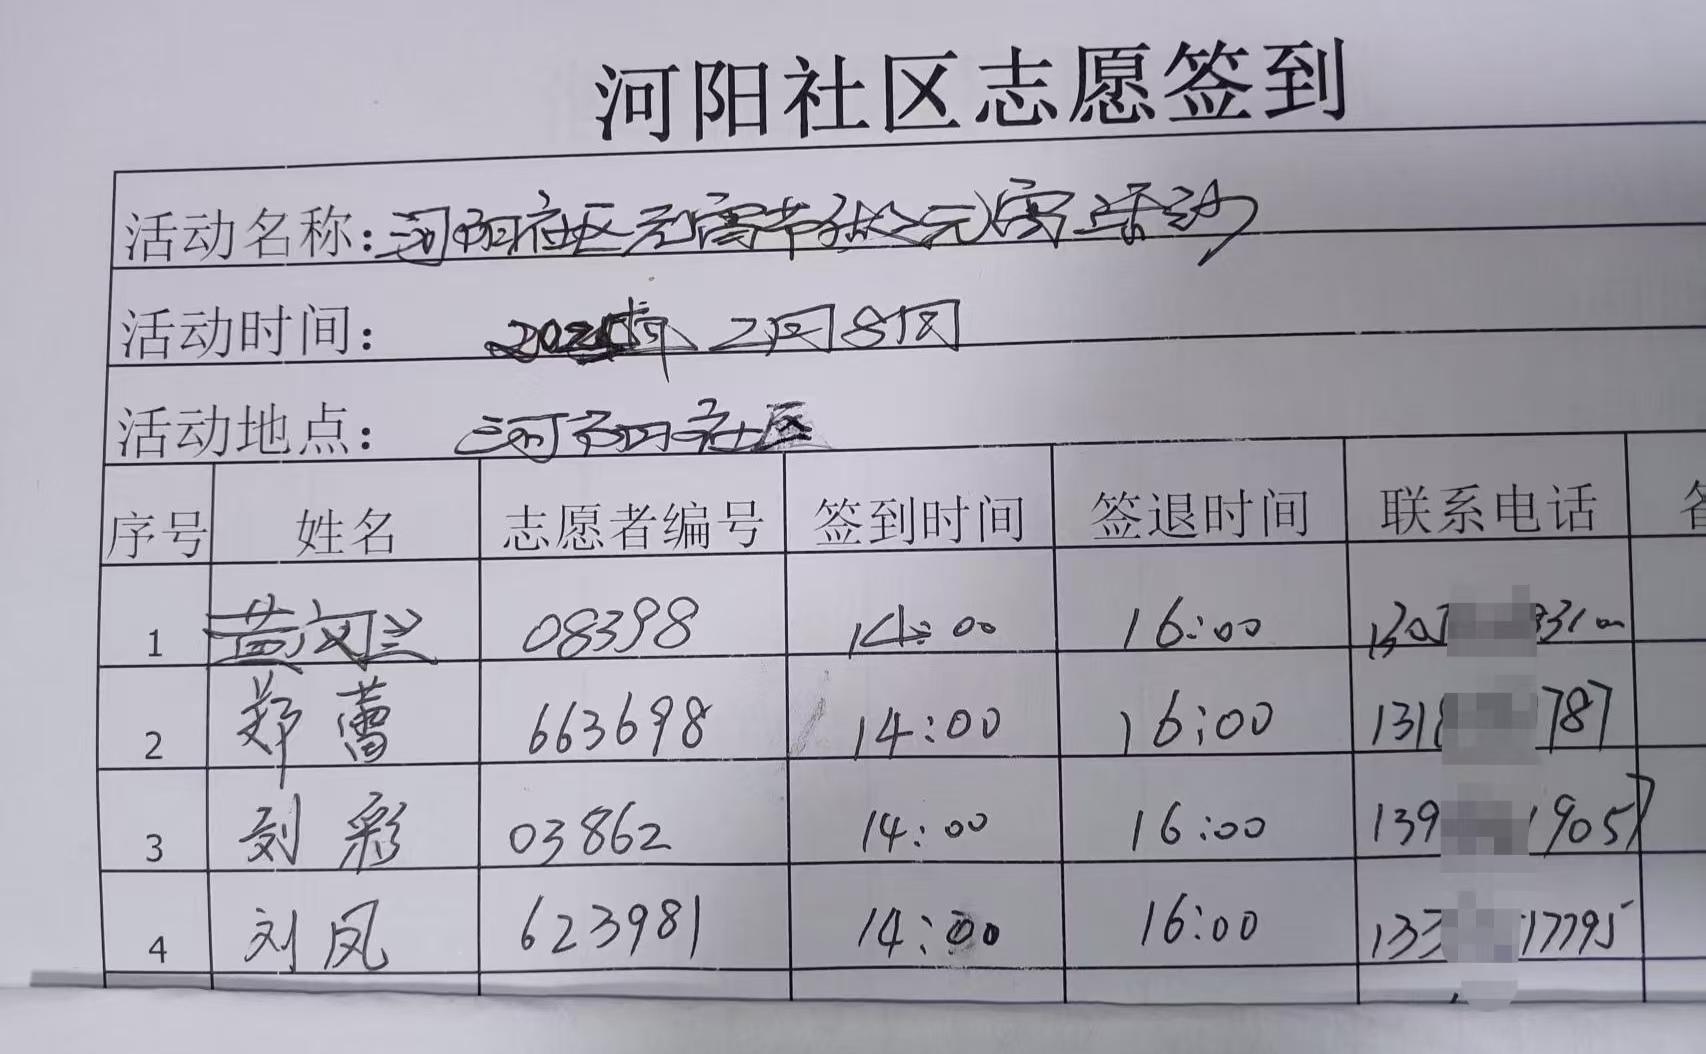 河阳社区志愿签到
活动名称：河阳社区元宵节做元宵活动
活动时间： 2025年2月8日
活动地点： 河阳社区
序号 姓名 志愿者编号 签到时间 签退时间 联系电话
1 08398 14:00 16:00
2 郑蕾 663698 14:00 16:00 131 787
3 刘彩 03862 14:00 16:00 139 19057
4 刘凤 623981 14:00 16:00 133 17795